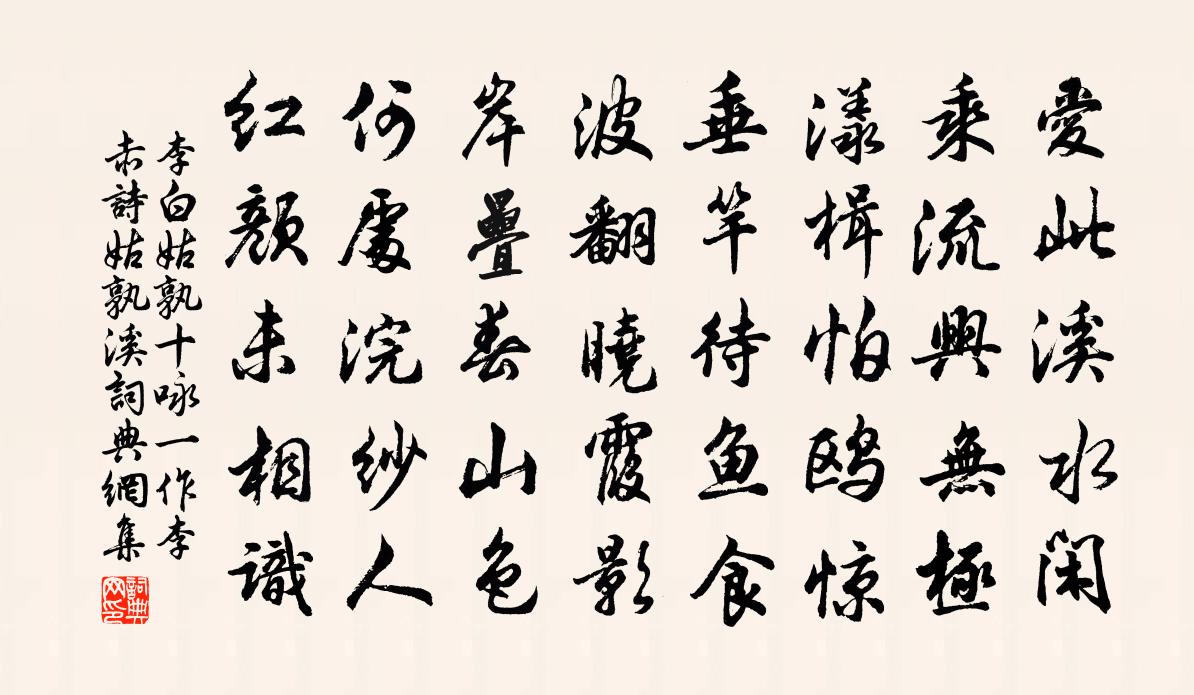 愛此溪水闲
乘流興無極
漾楫怕鸥惊
垂竿待鱼食
波翻曉霞影
岸疊春山色
何處浣纱人
红顔未相識
李白姑孰十咏一作李
赤詩姑孰溪詞典網集
詞典
网印